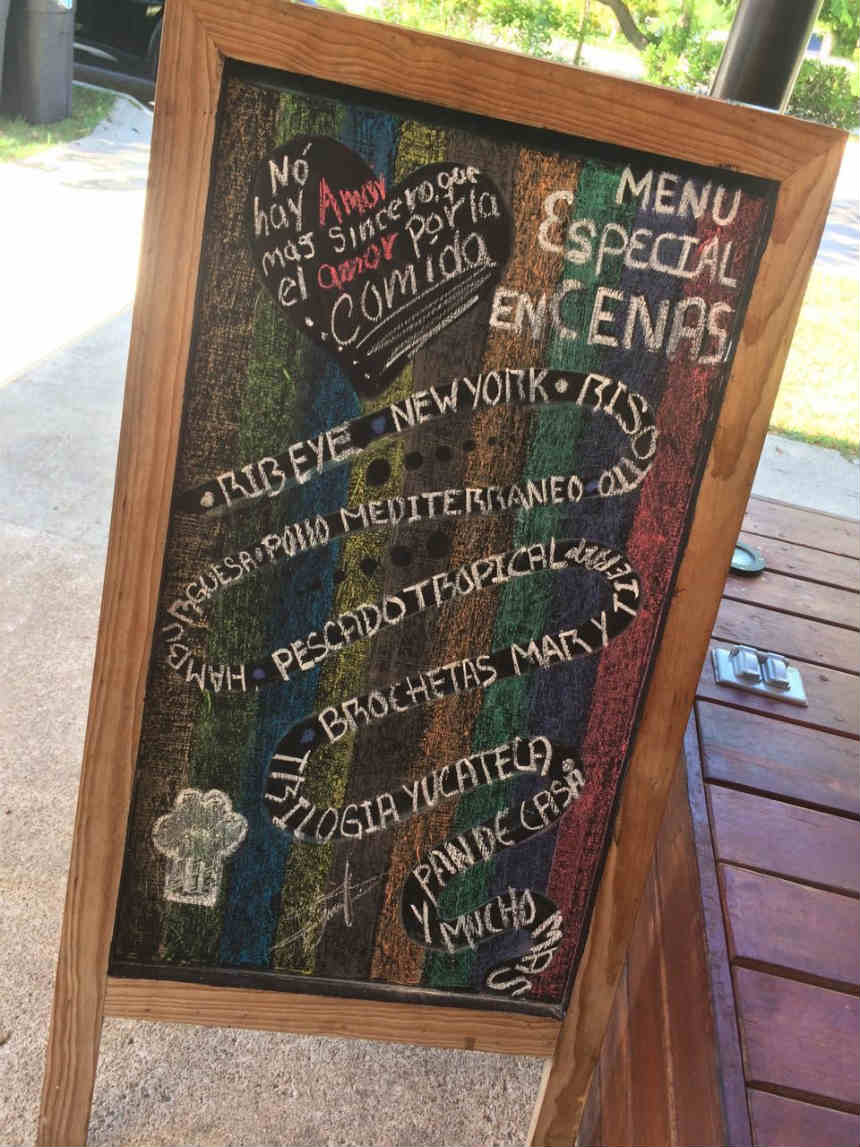 Nó
hay Amor
mas sincero, que
el amor pór la
comida
MENU
ESPECIAL
EN CENAS
• RIB EYE • NEW YORK • RISOTTO
HAMBURGUESA • POLLO MEDITERRANEO
• PESCADO TROPICAL
• BROCHETAS MAR Y TIERRA
• TRILOGIA YUCATECA •
PAN DE CASA
Y MUCHO MAS